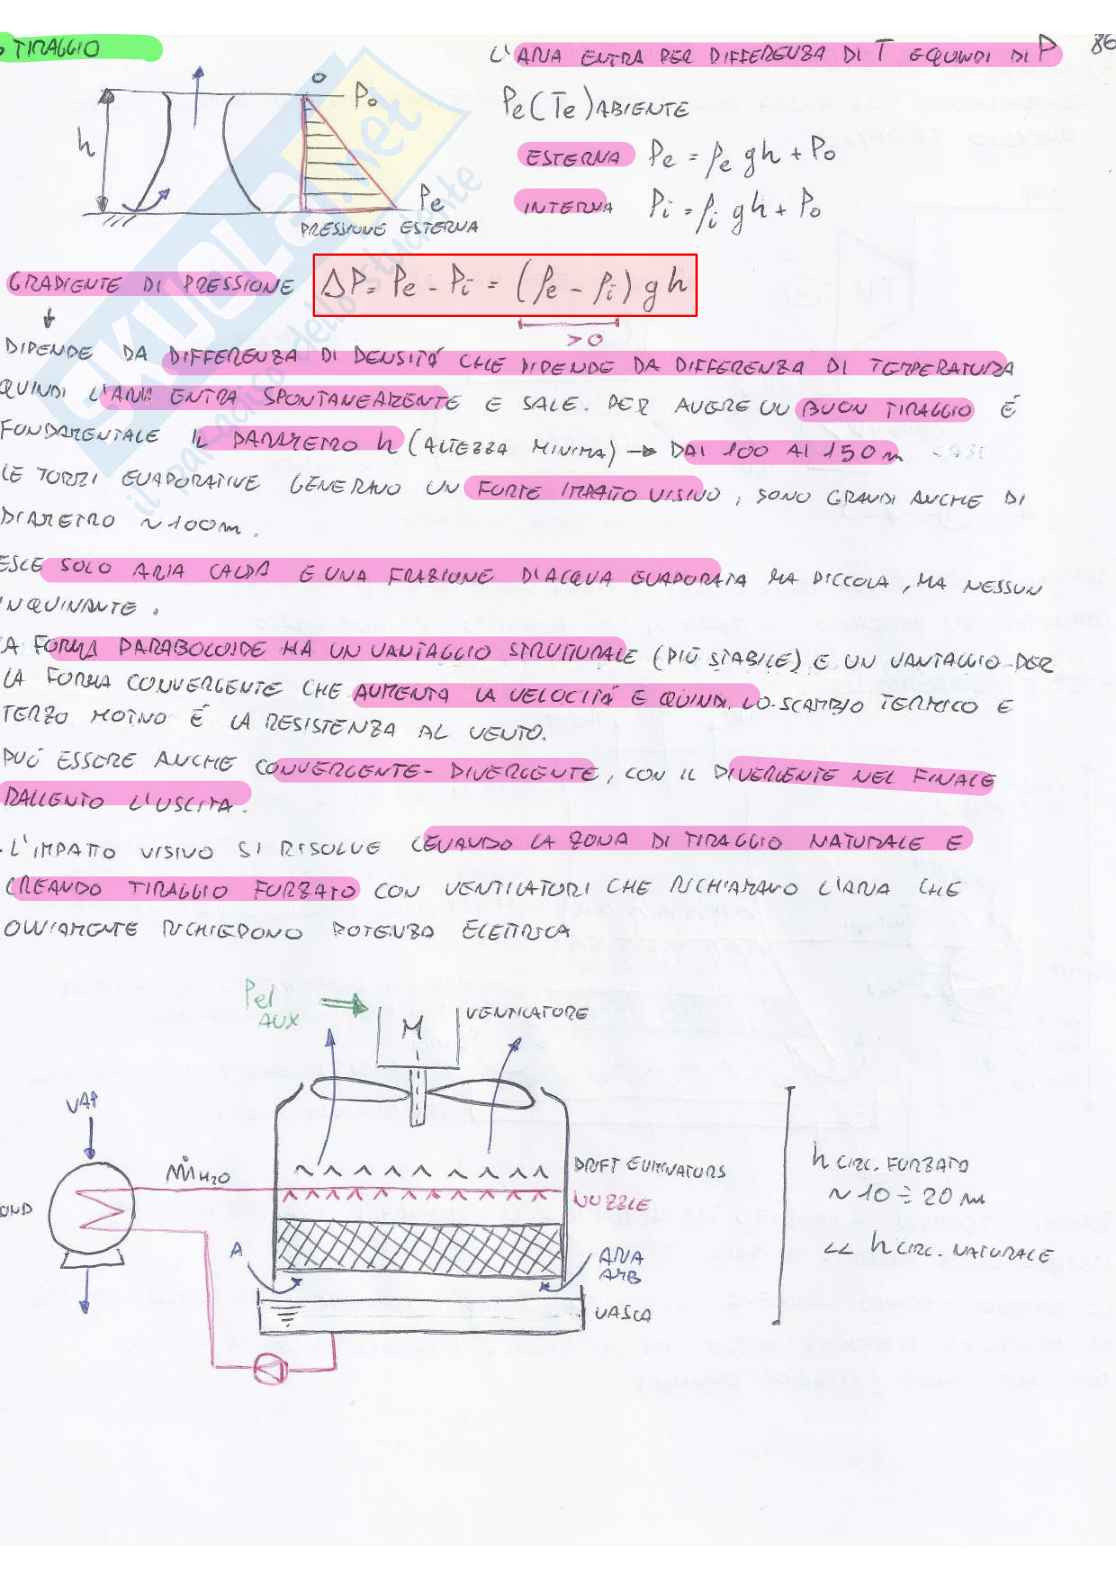 TIRAGGIO
L'ARIA ENTRA PER DIFFERENZA DI T E QUINDI DI P
86
h
0
Po
Pe
PRESSIONE ESTERNA
Pe (Te) ABIENTE
ESTERNA Pe = ρe gh + Po
INTERNA Pi = ρi gh + Po
GRADIENTE DI PRESSIONE ΔP = Pe - Pi = (ρe - ρi) gh
>0
DIPENDE DA DIFFERENZA DI DENSITÁ CHE DIPENDE DA DIFFERENZA DI TEMPERATURA
QUINDI L'ARIA ENTRA SPONTANEAMENTE E SALE. PER AVERE UN BUON TIRAGGIO É
FONDAMENTALE IL PARAMETRO h (ALTEZZA MINIMA) → DAI 100 AI 150 m
LE TORRI EVAPORATIVE GENERANO UN FORTE IMPATTO VISIVO, SONO GRANDI ANCHE DI
DIAMETRO ~100m.
ESCE SOLO ARIA CALDA E UNA FRAZIONE D'ACQUA EVAPORATA MA PICCOLA, MA NESSUN
INQUINANTE.
LA FORMA PARABOLOIDE HA UN VANTAGGIO STRUTTURALE (PIÙ STABILE) E UN VANTAGGIO PER
LA FORMA CONVERGENTE CHE AUMENTA LA VELOCITÁ E QUINDI LO SCAMBIO TERMICO E
TERZO MOTIVO É LA RESISTENZA AL VENTO.
PUÓ ESSERE ANCHE CONVERGENTE-DIVERGENTE, CON IL DIVERGENTE NEL FINALE
RALLENTO L'USCITA.
L'IMPATTO VISIVO SI RISOLVE LEVANDO LA ZONA DI TIRAGGIO NATURALE E
CREANDO TIRAGGIO FORZATO CON VENTILATORI CHE RICHIAMANO L'ARIA CHE
OVVIAMENTE RICHIEDONO POTENZA ELETTRICA
Pel
AUX
M
VENTILATORE
VAP
ṁH2O
DRIFT ELIMINATORS
NOZZLE
COND
A
ARIA
AMB
VASCA
h CIRC. FORZATO
~ 10 ÷ 20 m
<< h CIRC. NATURALE
SKUOLA.net
il paradiso dello studente